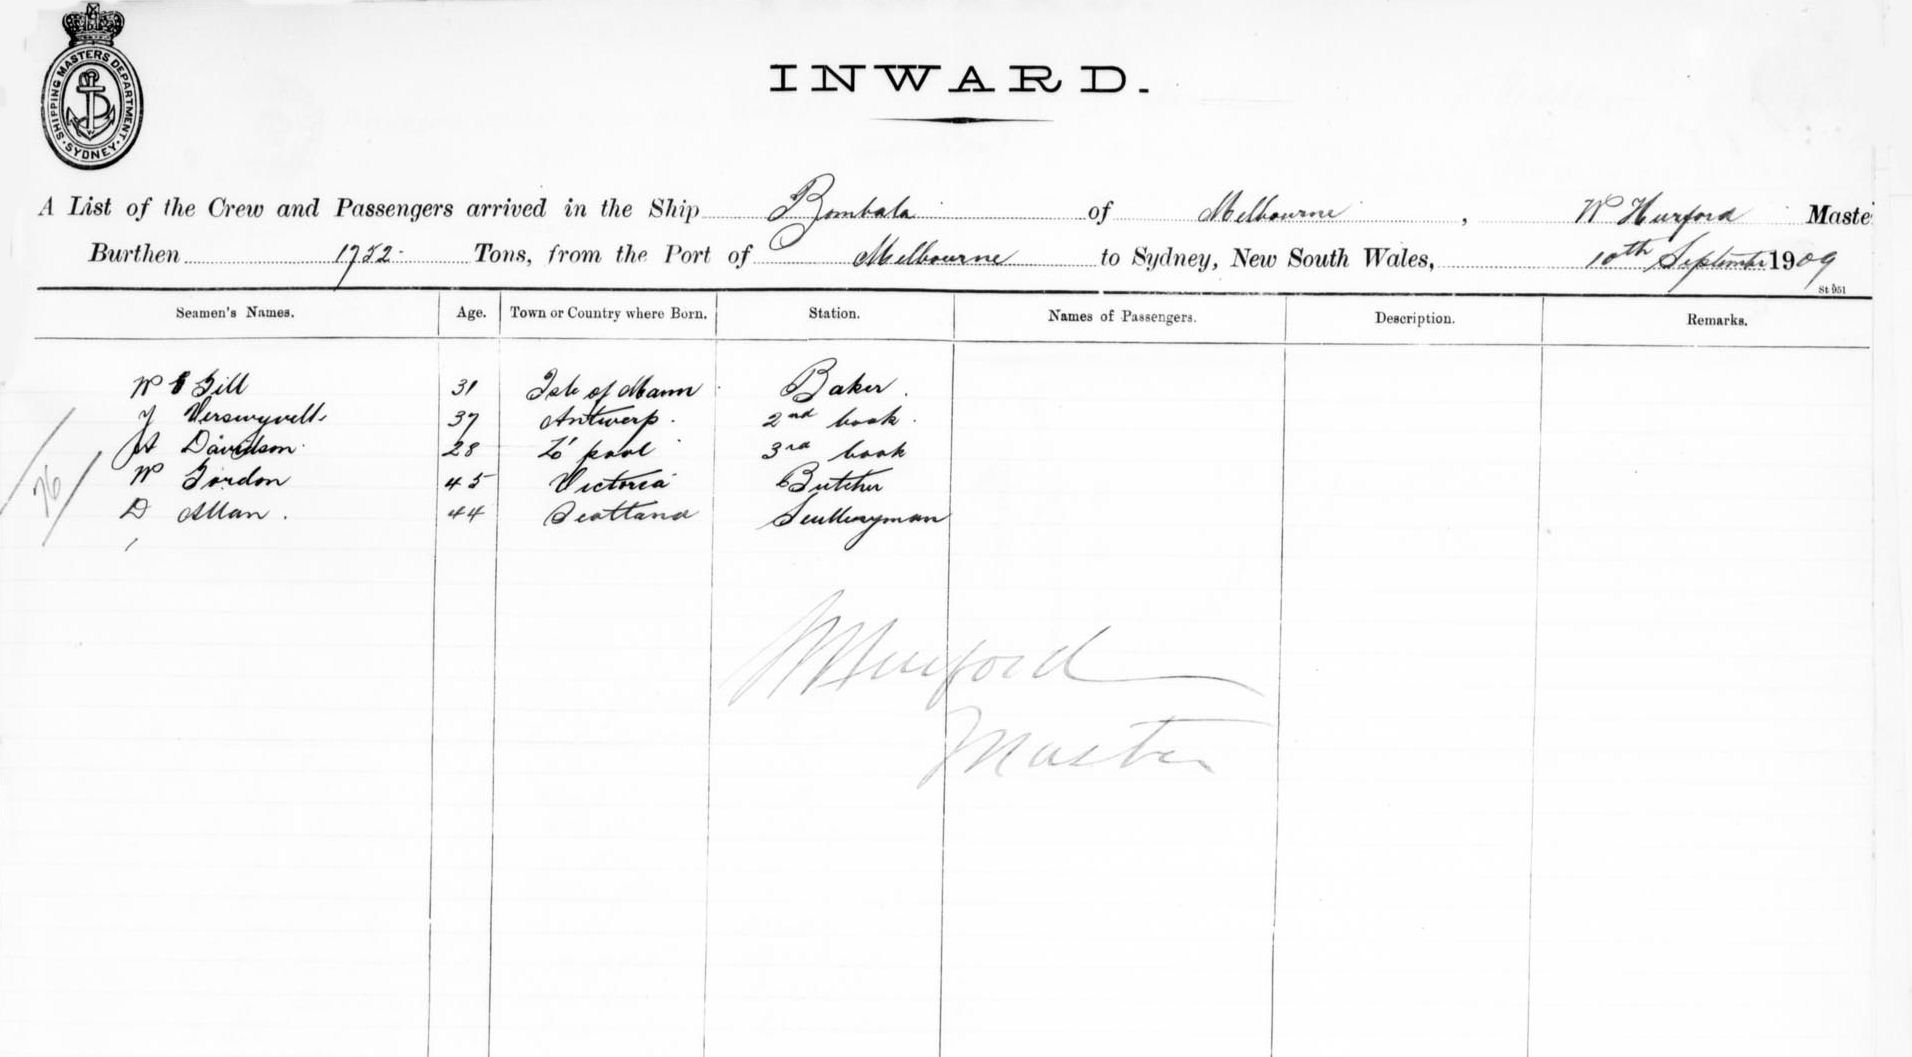 SHIPPING MASTERS DEPARTMENT. SYDNEY.
INWARD.
A List of the Crew and Passengers arrived in the Ship Bombala of Melbourne, W Hurford Maste
Burthen 1752 Tons, from the Port of Melbourne to Sydney, New South Wales, 10th September 1909
St 951
Seamen's Names. Age. Town or Country where Born. Station. Names of Passengers. Description. Remarks.
W Gill 31 Isle of Mann Baker.
J 37 Antwerp. 2nd Cook.
Davidson 28 L'pool 3rd Cook
W Gordon 45 Victoria Butcher
D Allan. 44 Scotland Sculleryman
76
W Hurford
Master